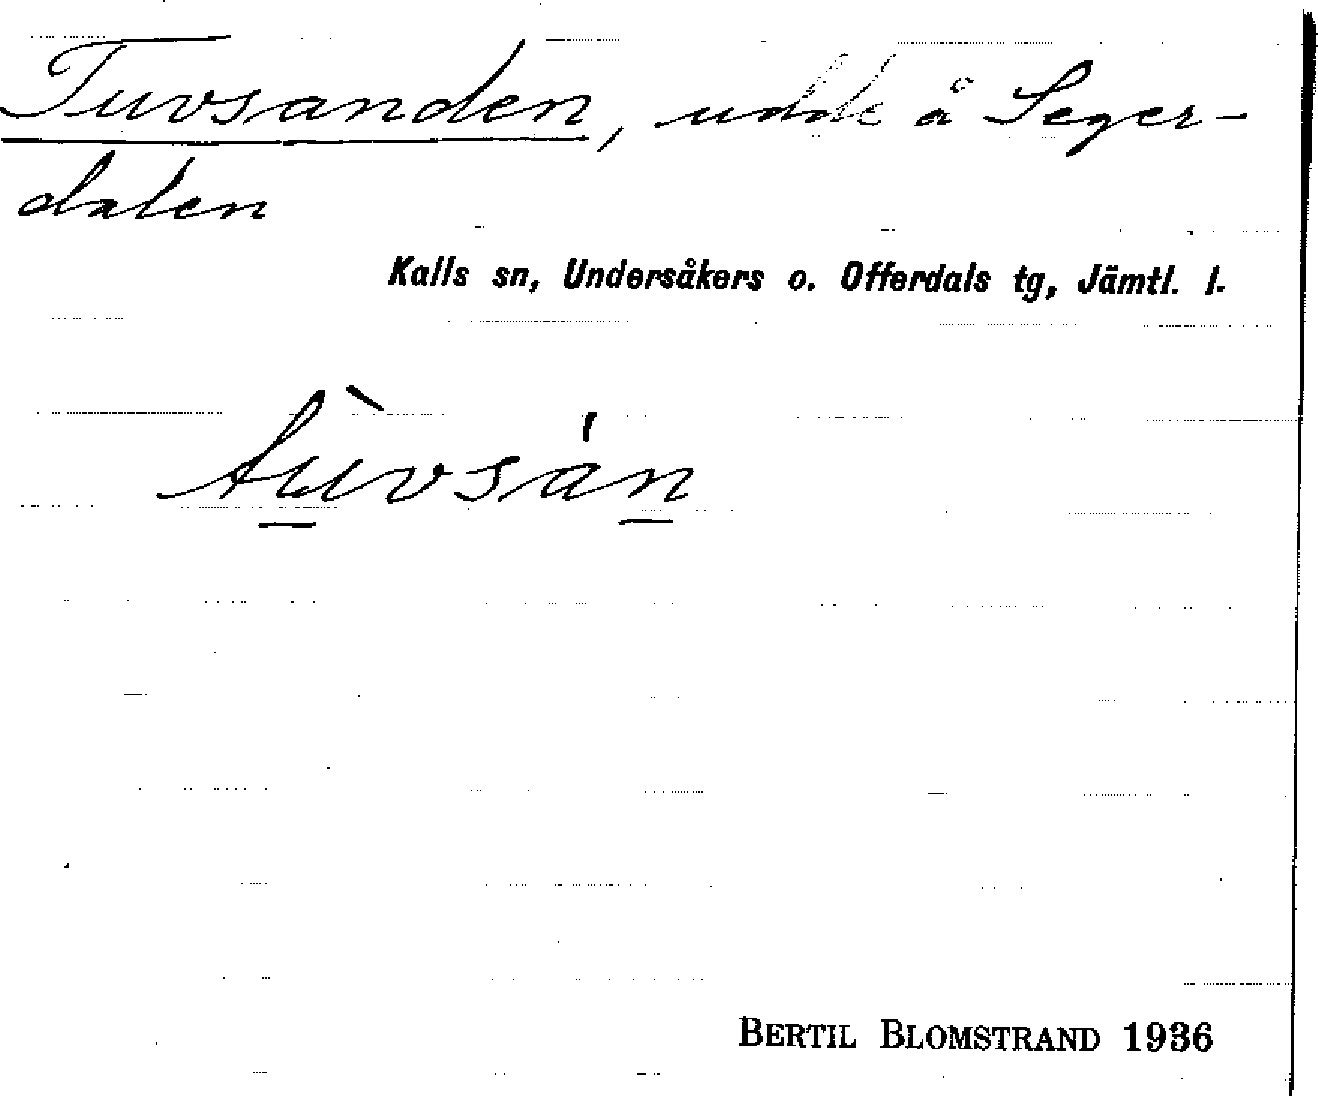 Tuvsanden, udde å Seger-
dalen
Kalls sn, Undersåkers o. Offerdals tg, Jämtl. l.
tùvsán
BERTIL BLOMSTRAND 1936